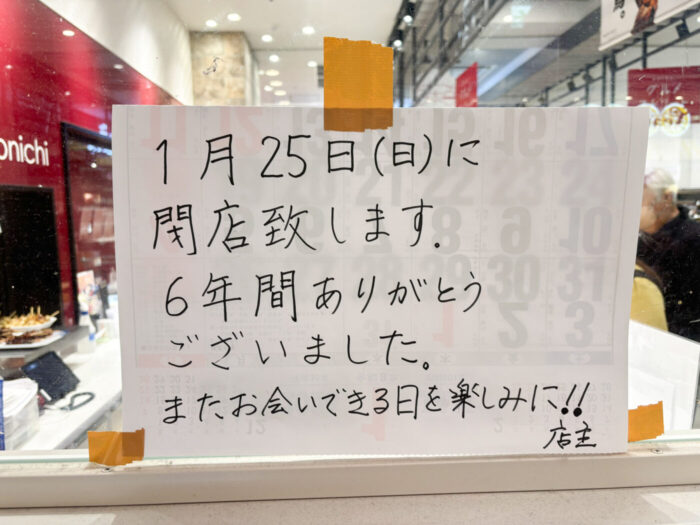 1月25日(日)に
閉店致します.
6年間ありがとう
ございました。
またお会いできる日を楽しみに!!
店主
onichi